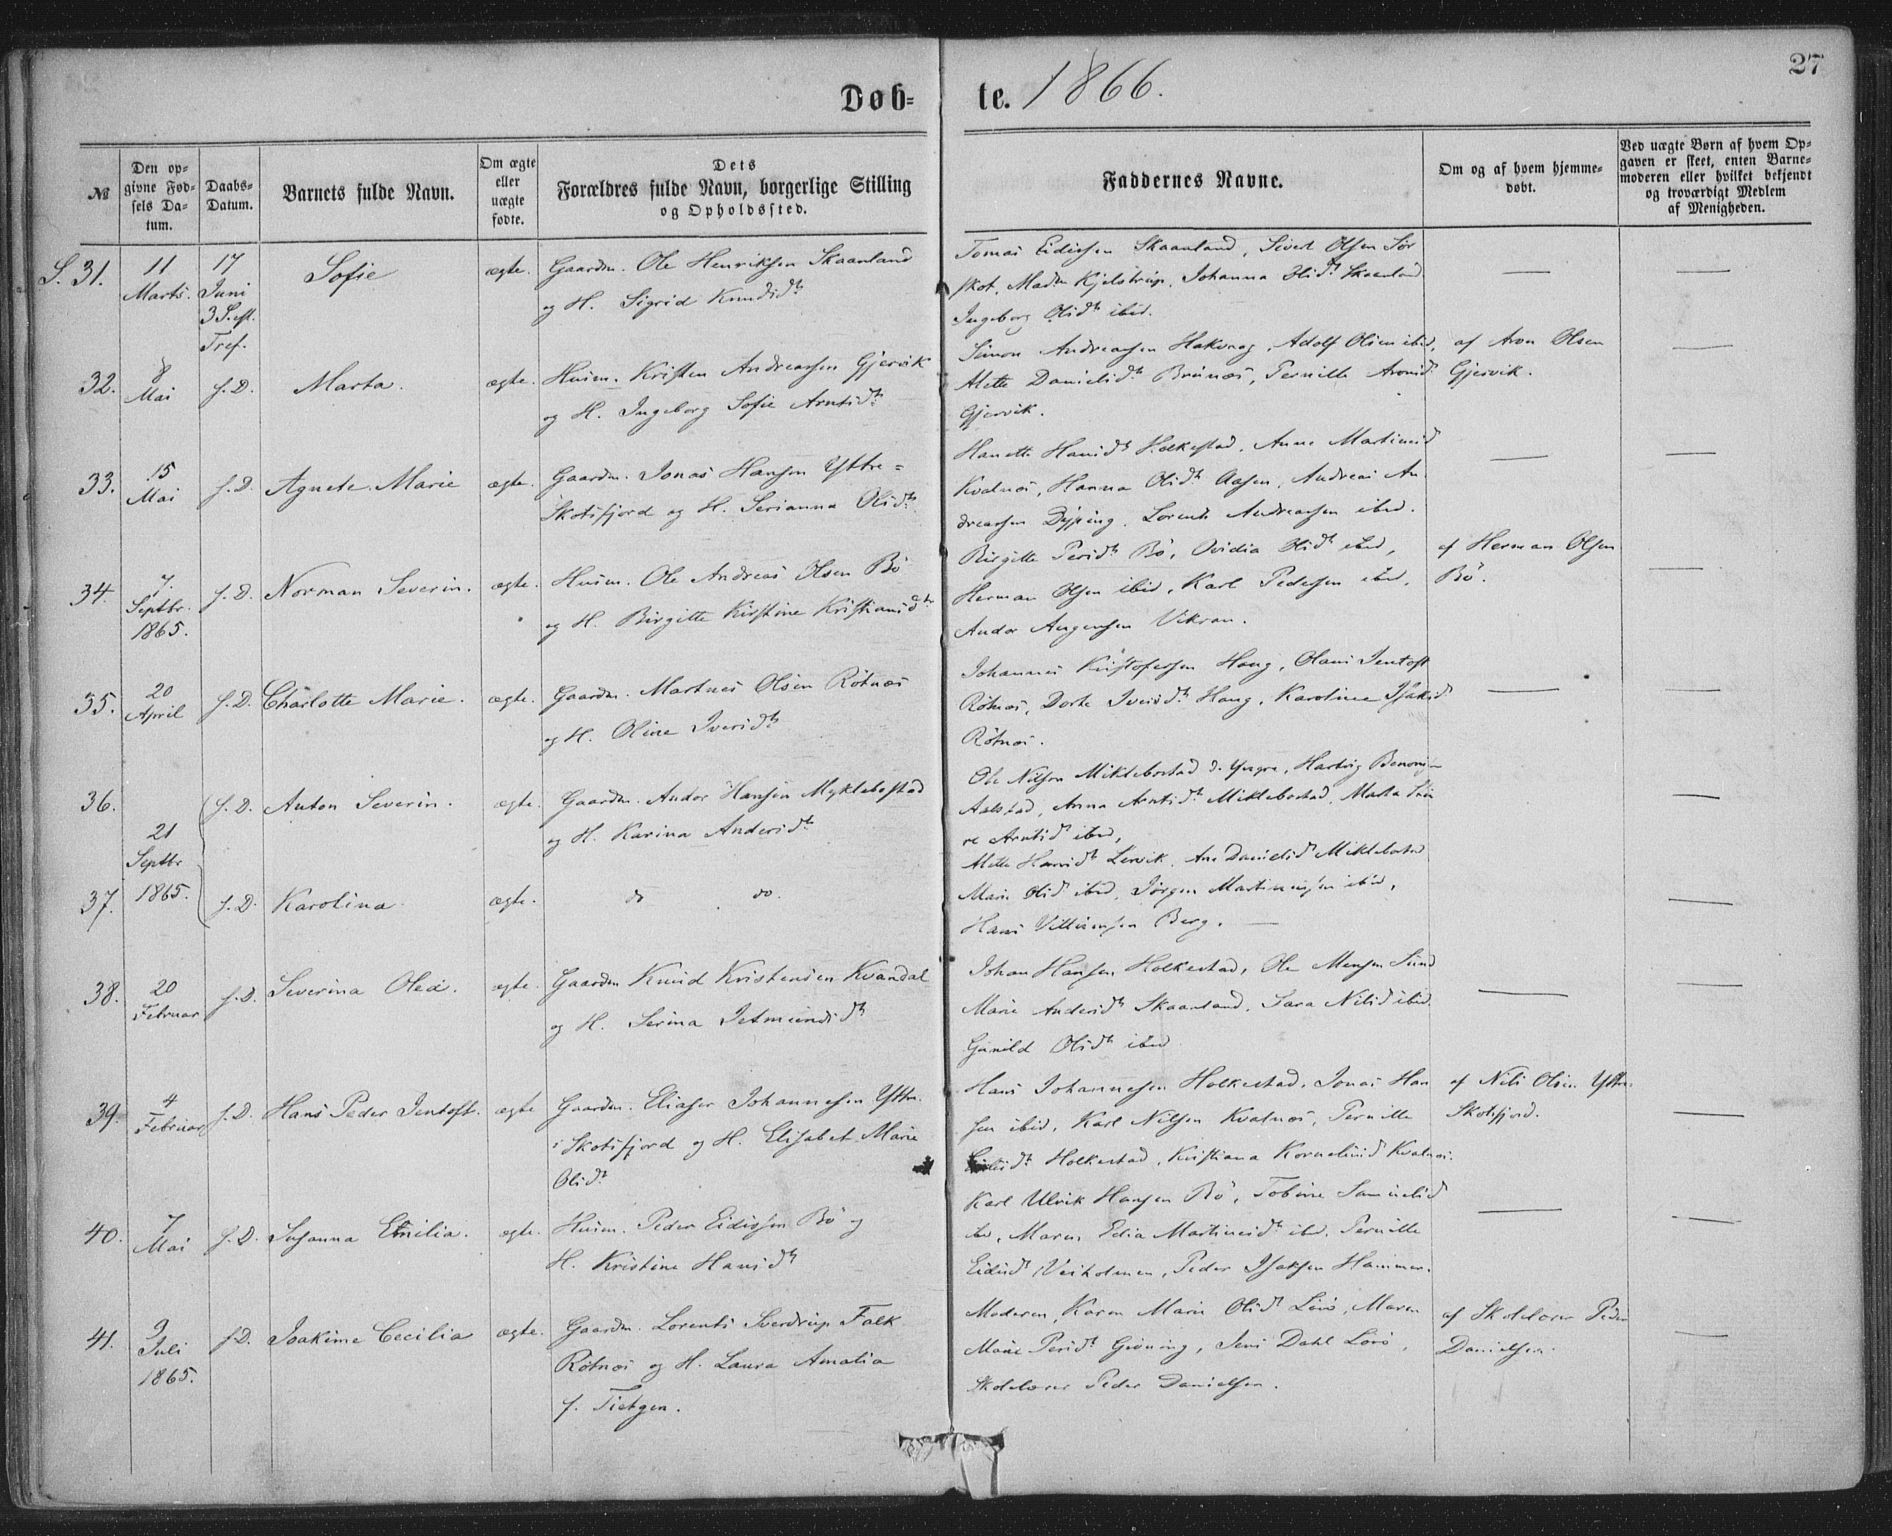 27
Døb- te. 1866.
№
Den opgivne Fødsels Datum.
Daabs-Datum.
Barnets fulde Navn.
Om ægte eller uægte fødte.
Dets Forældres fulde Navn, borgerlige Stilling og Opholdssted.
Faddernes Navne.
Om og af hvem hjemmedøbt.
Ved uægte Børn af hvem Opgaven er skeet, enten Barnemoderen eller hvilket bekjendt og troværdigt Medlem af Menigheden.
S. 31. 11 Marts. 17 Juni 3 S. eft. Tref. Sofie ægte. Gaardm. Ole Henriksen Skaanland
og H. Sigrid Knudsdt
Tomas Eidissen Skaanland, Sivert Olsen Sør
skot, Madm Kjelstrup, Johanna Olisdt Skaanland
Ingeborg Olisdt ibid.
32. 8 Mai f. D. Marta. ægte. Husm. Kristen Andreassen Gjervik
og H. Ingeborg Sofie Arntsdt
Simon Andreassen Hakvaag, Adolf Olsen ibid,
Alette Danielsdt Brunæs, Pernille Aronsdt
Gjervik.
af Aron Olsen
Gjervik.
33. 15 Mai f. D. Agnete Marie ægte. Gaardm. Jonas Hansen Yttre-
Skotsfjord og H. Serianna Olisdt
Hanette Hansdt Holkestad, Anne Martinsd
Kvalnæs, Hanna Olisdt Aasen, Andreas An
dreassen Dypping, Lorents Andreassen ibid.
34. 7 Septbr. 1865. f. D. Norman Severin. ægte. Husm. Ole Andreas Olsen Bø
og H. Birgitte Kirstine Kristiansdt
Birgitte Persdt Bø, Ovidia Olisdt ibid,
Herman Olsen ibid, Karl Pedersen ibid,
Andor Angensen Vikran.
af Herman Olsen
Bø.
35. 20 April f. D. Charlotte Marie. ægte. Gaardm. Martnes Olsen Rötnæs
og H. Oline Iversdt
Johannes Kristofersen Haug, Olaus Jentoft
Rötnæs, Dorte Iversdt Haug, Karoline Isaksd
Rötnæs.
36. 21 Septbr 1865. f. D. Anton Severin. ægte. Gaardm. Andor Hansen Myklebostad
og H. Karina Andersdt
Ole Nilsen Miklebostad d. Yngre, Hartvig Benonis-
Aalstad, Anna Arntsdt Miklebostad, Marta
re Arntsd ibid,
37. f. D. Karolina ægte. do do.
Alette Hansdt Lervik, Ane Danielsd Miklebostad
Marie Olisd ibid, Jørgen Martinussen ibid,
Hans Berg.
38. 20 Februar f. D. Severina Olea. ægte. Gaardm Knud Kristensen Kvandal
og H. Serina Jetmundsdt
Johan Hansen Holkestad, Ole Monsen Sund
Marie Andersdt Skaanland, Sara Nilsd ibid
Gunild Olisdt ibid
39. 4 Februar f. D. Hans Peder Jentoft. ægte Gaardm. Eliaser Johannesen Yttre-
Skotsfjord og H. Elisabet Marie
Olisdt
Hans Johannesen Holkestad, Jonas Han
sen ibid, Karl Nilsen Kvalnæs, Pernille
Holkestad, Kristiana Korneliusd Kvalnæs.
af Nils Olsen Yttre-
Skotsfjord.
40. 7 Mai f. D. Susanna Emilia. ægte. Husm. Peder Eidissen Bø og
H. Kristine Hansdt
Karl Ulrik Hansen Bø, Tobine Samuelsd
ibid, Maren Edia Martinusdt ibid, Pernille
Eidisdt Veiholmen, Peder Isaksen Hammer.
41. 9 Juli 1865. f. D. Joakime Cecilia ægte. Gaardm. Lorents Sverdrup Falk
Rötnæs og H. Laura Amalia
f. Tietgen.
Moderen, Karen Marie Olisdt Lørø, Maren
Marie Persdt Givning, Jens Dahl Lørø,
Skolelærer Peder Danielsen.
af Skolelærer Peder
Danielsen.